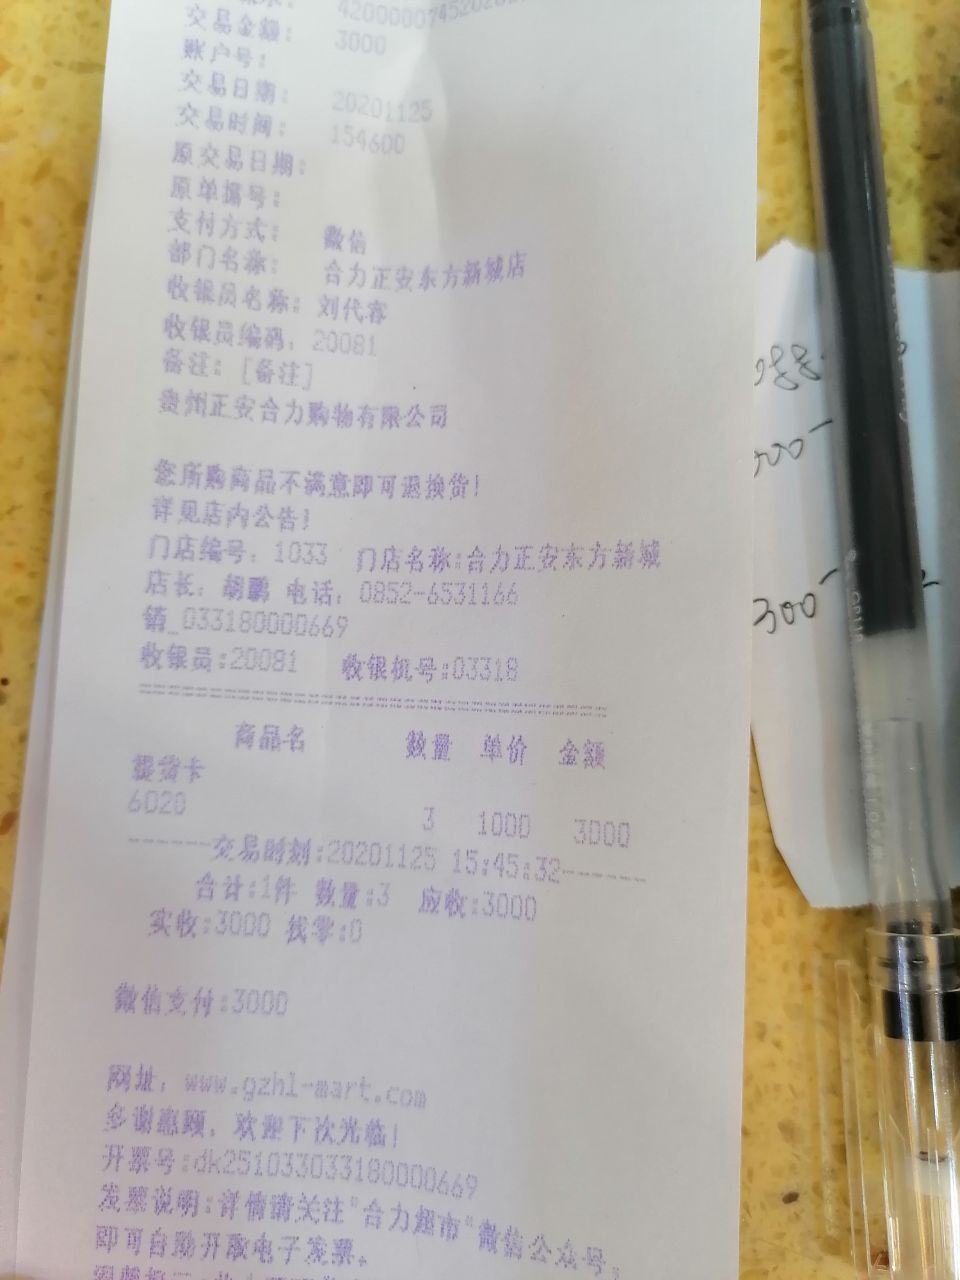 交易金额： 3000
账户号：
交易日期： 20201125
交易时间： 154600
原交易日期：
原单据号：
支付方式： 微信
部门名称： 合力正安东方新城店
收银员名称：刘代容
收银员编码：20081
备注：[备注]
贵州正安合力购物有限公司
您所购商品不满意即可退换货！
详见店内公告！
门店编号：1033 门店名称:合力正安东方新城
店长：胡鹏 电话：0852-6531166
销_033180000669
收银员:20081 收银机号:03318
商品名 数量 单价 金额
提货卡
6020 3 1000 3000
------交易时刻:20201125 15:45:32------
合计:1件 数量:3 应收:3000
实收:3000 找零:0
微信支付:3000
网址：www.gzhl-mart.com
多谢惠顾，欢迎下次光临！
开票号:dk251033033180000669
发票说明:详情请关注"合力超市"微信公众号，
即可自助开取电子发票。
300-